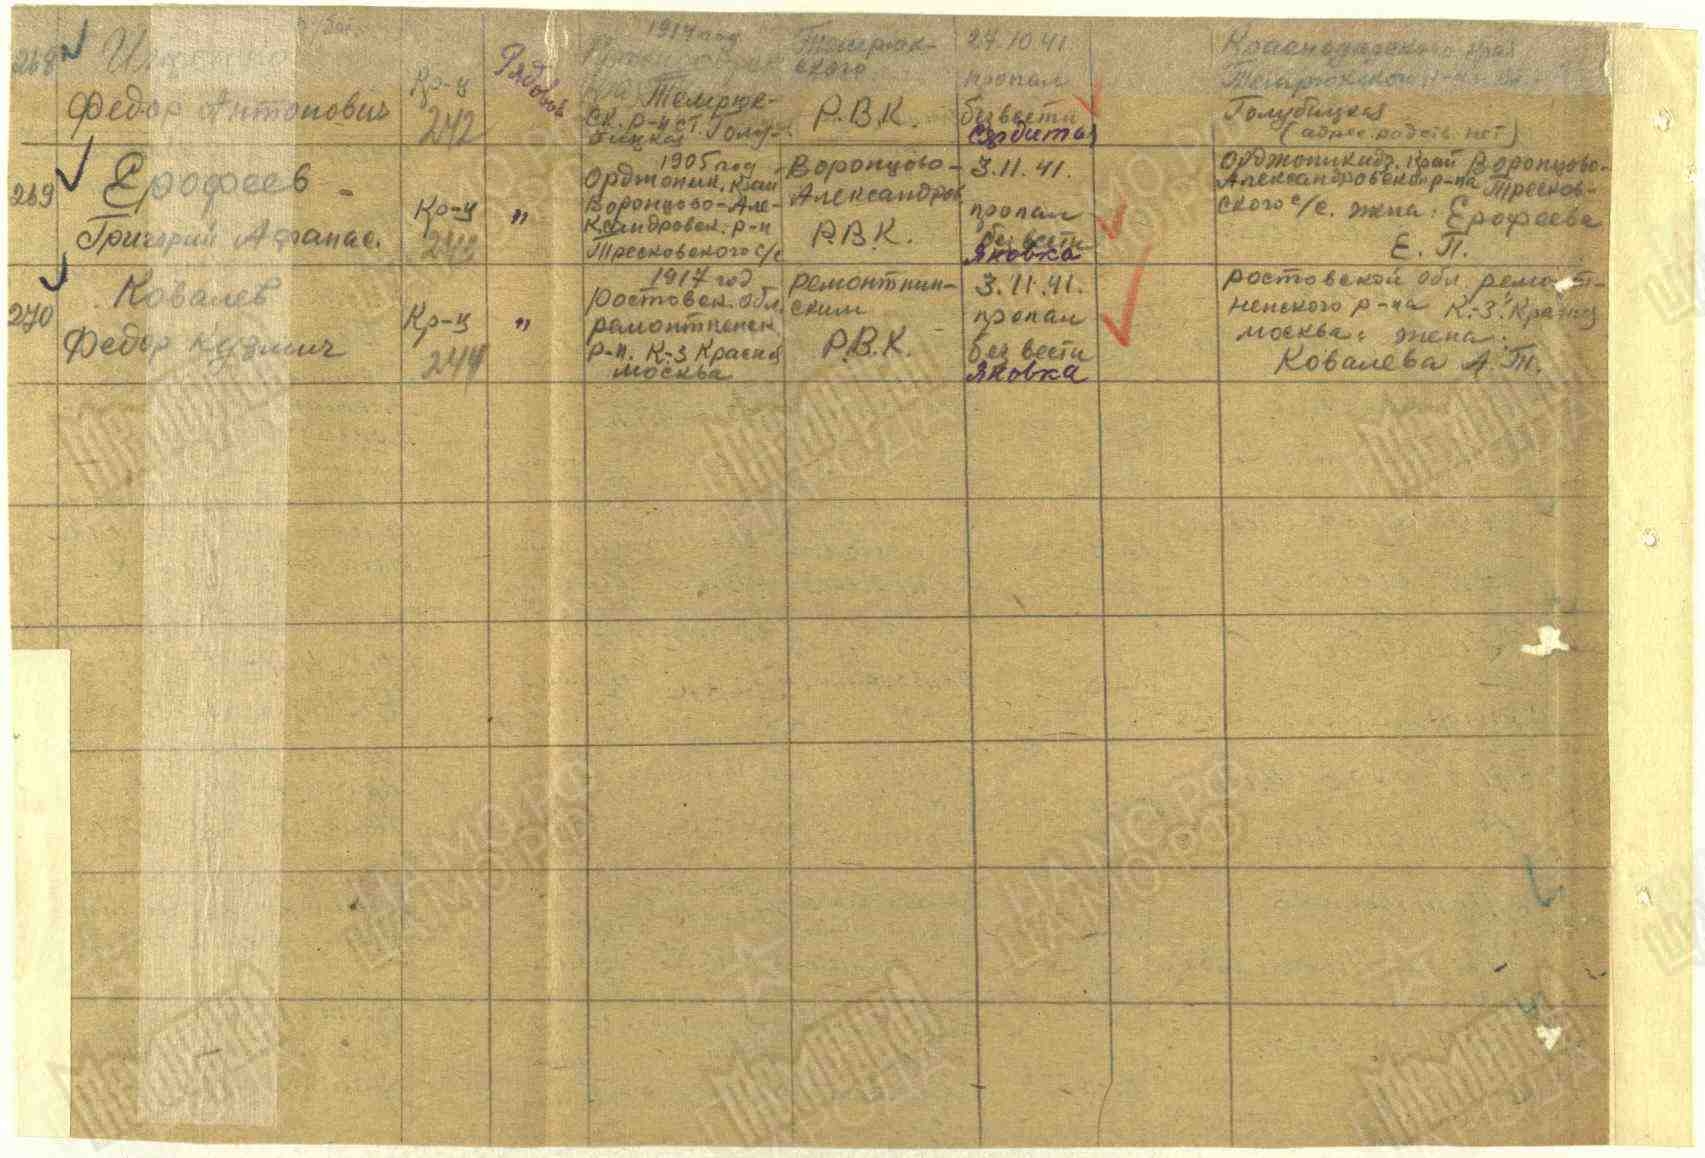 268
Федор Антонович
Кр-ц
242
Рядовой
1917 год
Темрюк-
ск. р-н ст. Голу-
бицкая
Темрюк-
ского
Р.В.К.
27.10.41
пропал
без вести
Краснодарского края
Темрюкского р-на
Голубицкая
(адрес. родств. нет)
269
Ерофеев -
Григорий Афанас.
Кр-ц
243
"
1905 год
Орджоник. край
Воронцово-Але-
ксандровск. р-н
Тресковского с/с
Воронцово-
Александров
Р.В.К.
3.11.41.
пропал
без вести
Яновка
Орджоникидз. край Воронцово-
Александровского р-на Тресков-
ского с/с. жена: Ерофеева
Е. П.
270
Ковалев
Федор Кузмич
Кр-ц
244
"
1917 год
Ростовск. обл.
ремонтненск.
р-н. К-З Красная
москва
ремонтнин-
ским
Р.В.К.
3.11.41.
пропал
без вести
Яновка
ростовской обл. ремонт-
ненского р-на К.-З.
москва: жена:
Ковалева А.Т.
МЕМОРИАЛ
ЦАМО.РФ